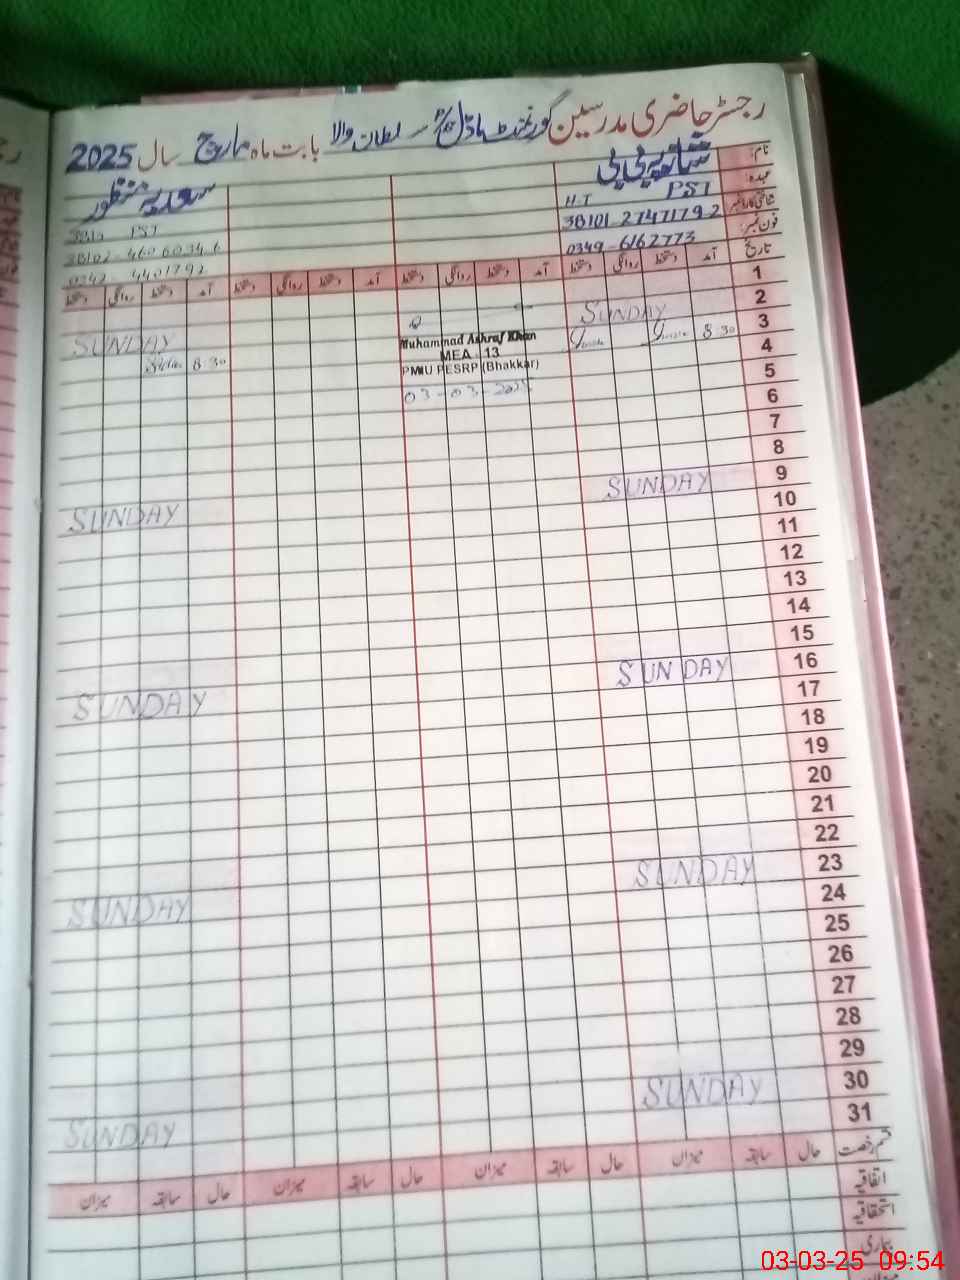 رجسٹر حاضری مدرسین گورنمنٹ ماڈل پ/س سلطان والا بابت ماہ مارچ سال 2025
نام:
شانہ پی بی
سعدیہ منظور
عہدہ:
H.T PST
PST
شناختی کارڈ نمبر
38101-2747179-2
38102-4606034-6
فون نمبر:
0349-6162773
0342-4401792
تاریخ آمد دستخط روانگی دستخط آمد دستخط روانگی دستخط آمد دستخط روانگی دستخط آمد دستخط روانگی دستخط
1
2 SUNDAY SUNDAY
3 8:30 8:30
Muhammad Ashraf Khan
MEA - 13
PMIU PESRP (Bhakkar)
03-03-2025
4
5
6
7
8
9 SUNDAY SUNDAY
10
11
12
13
14
15
16 SUNDAY SUNDAY
17
18
19
20
21
22
23 SUNDAY SUNDAY
24
25
26
27
28
29
30 SUNDAY SUNDAY
31
قسم رخصت حال سابقہ میزان حال سابقہ میزان حال سابقہ میزان حال سابقہ میزان
اتفاقیہ
استحقاقیہ
بیماری
03-03-25 09:54